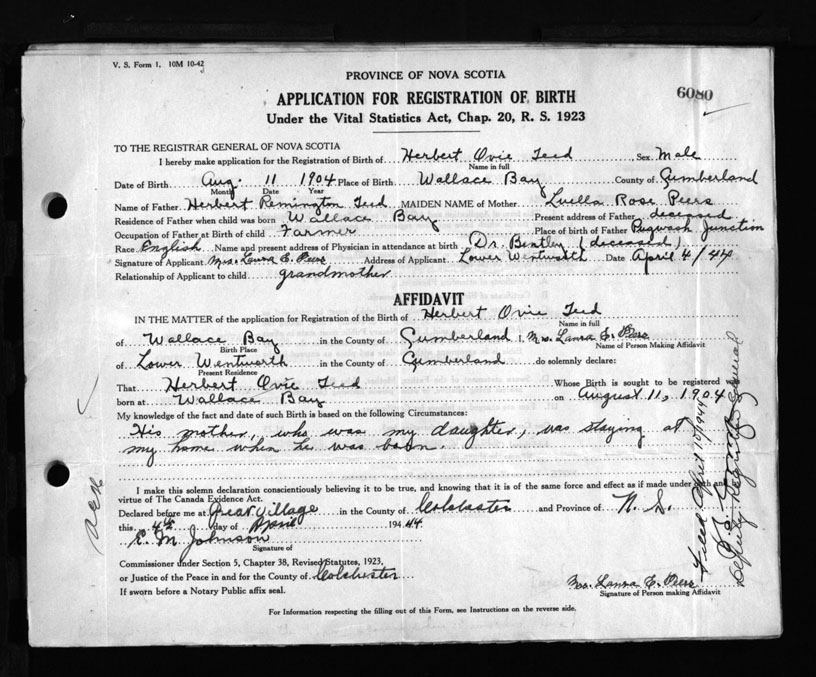 V. S. Form 1. 10M 10-42
PROVINCE OF NOVA SCOTIA
6080
APPLICATION FOR REGISTRATION OF BIRTH
Under the Vital Statistics Act, Chap. 20, R. S. 1923
TO THE REGISTRAR GENERAL OF NOVA SCOTIA
I hereby make application for the Registration of Birth of Herbert Ovie Teed Sex Male
Name in full
Date of Birth Aug. 11 1904 Place of Birth Wallace Bay County of Cumberland
Month Date Year
Name of Father Herbert Remington Teed MAIDEN NAME of Mother Luella Rose Peers
Residence of Father when child was born Wallace Bay Present address of Father deceased
Occupation of Father at Birth of child Farmer Place of birth of Father Pugwash Junction
Race English Name and present address of Physician in attendance at birth Dr. Bentley (deceased)
Signature of Applicant Mrs. Laura E. Peers Address of Applicant Lower Wentworth Date April 4/44
Relationship of Applicant to child grandmother
AFFIDAVIT
IN THE MATTER of the application for Registration of the Birth of Herbert Ovie Teed
Name in full
of Wallace Bay in the County of Cumberland I, Mrs. Laura E. Peers
Birth Place Name of Person Making Affidavit
of Lower Wentworth in the County of Cumberland do solemnly declare:
Present Residence
That Herbert Ovie Teed Whose Birth is sought to be registered was
born at Wallace Bay on August 11, 1904
My knowledge of the fact and date of such Birth is based on the following Circumstances:
His mother, who was my daughter, was staying at
my home when he was born.
I make this solemn declaration conscientiously believing it to be true, and knowing that it is of the same force and effect as if made under oath and
virtue of The Canada Evidence Act.
Declared before me at Great Village in the County of Colchester and Province of N. S.
this 4th day of April 194 44
E. M. Johnson
Signature of
Commissioner under Section 5, Chapter 38, Revised Statutes, 1923,
or Justice of the Peace in and for the County of Colchester
If sworn before a Notary Public affix seal.
Mrs. Laura E. Peers
Signature of Person making Affidavit
For Information respecting the filling out of this Form, see Instructions on the reverse side.
Filed April 10/1944
Deputy Registrar General